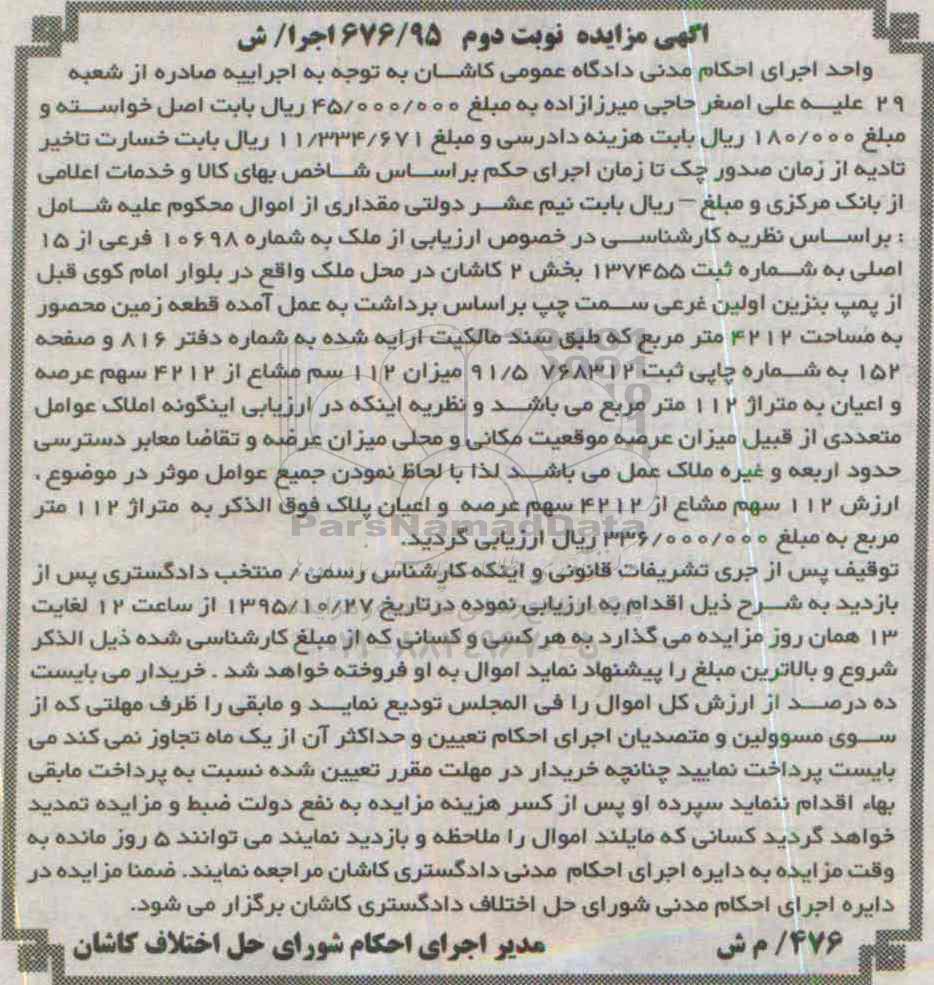 اگهی مزایده نوبت دوم ۶۷۶/۹۵ اجرا/ ش
واحد اجرای احکام مدنی دادگاه عمومی کاشان به توجه به اجراییه صادره از شعبه
۲۹ علیه علی اصغر حاجی میرزازاده به مبلغ ۴۵/۰۰۰/۰۰۰ ریال بابت اصل خواسته و
مبلغ ۱۸۰/۰۰۰ ریال بابت هزینه دادرسی و مبلغ ۱۱/۳۳۴/۶۷۱ ریال بابت خسارت تاخیر
تادیه از زمان صدور چک تا زمان اجرای حکم براساس شاخص بهای کالا و خدمات اعلامی
از بانک مرکزی و مبلغ – ریال بابت نیم عشر دولتی مقداری از اموال محکوم علیه شامل
: براساس نظریه کارشناسی در خصوص ارزیابی از ملک به شماره ۱۰۶۹۸ فرعی از ۱۵
اصلی به شماره ثبت ۱۳۷۴۵۵ بخش ۲ کاشان در محل ملک واقع در بلوار امام کوی قبل
از پمپ بنزین اولین غرعی سمت چپ براساس برداشت به عمل آمده قطعه زمین محصور
به مساحت ۴۲۱۲ متر مربع که طبق سند مالکیت ارایه شده به شماره دفتر ۸۱۶ و صفحه
۱۵۲ به شماره چاپی ثبت ۷۶۸۳۱۲ ۹۱/۵ میزان ۱۱۲ سم مشاع از ۴۲۱۲ سهم عرصه
و اعیان به متراژ ۱۱۲ متر مربع می باشد و نظریه اینکه در ارزیابی اینگونه املاک عوامل
متعددی از قبیل میزان عرصه موقعیت مکانی و محلی میزان عرضه و تقاضا معابر دسترسی
حدود اربعه و غیره ملاک عمل می باشد لذا با لحاظ نمودن جمیع عوامل موثر در موضوع ،
ارزش ۱۱۲ سهم مشاع از ۴۲۱۲ سهم عرصه و اعیان پلاک فوق الذکر به متراژ ۱۱۲ متر
ParsNamadData
مربع به مبلغ ۳۳۶/۰۰۰/۰۰۰ ریال ارزیابی گردید.
توقیف پس از جری تشریفات قانونی و اینکه کارشناس رسمی / منتخب دادگستری پس از
بازدید به شرح ذیل اقدام به ارزیابی نموده درتاریخ ۱۳۹۵/۱۰/۲۷ از ساعت ۱۲ لغایت
۱۳ همان روز مزایده می گذارد به هر کسی و کسانی که از مبلغ کارشناسی شده ذیل الذکر
شروع و بالاترین مبلغ را پیشنهاد نماید اموال به او فروخته خواهد شد . خریدار می بایست
ده درصد از ارزش کل اموال را فی المجلس تودیع نماید و مابقی را ظرف مهلتی که از
سوی مسوولین و متصدیان اجرای احکام تعیین و حداکثر آن از یک ماه تجاوز نمی کند می
بایست پرداخت نمایید چنانچه خریدار در مهلت مقرر تعیین شده نسبت به پرداخت مابقی
بهاء اقدام ننماید سپرده او پس از کسر هزینه مزایده به نفع دولت ضبط و مزایده تمدید
خواهد گردید کسانی که مایلند اموال را ملاحظه و بازدید نمایند می توانند ۵ روز مانده به
وقت مزایده به دایره اجرای احکام مدنی دادگستری کاشان مراجعه نمایند. ضمنا مزایده در
دایره اجرای احکام مدنی شورای حل اختلاف دادگستری کاشان برگزار می شود.
۴۷۶/ م ش مدیر اجرای احکام شورای حل اختلاف کاشان